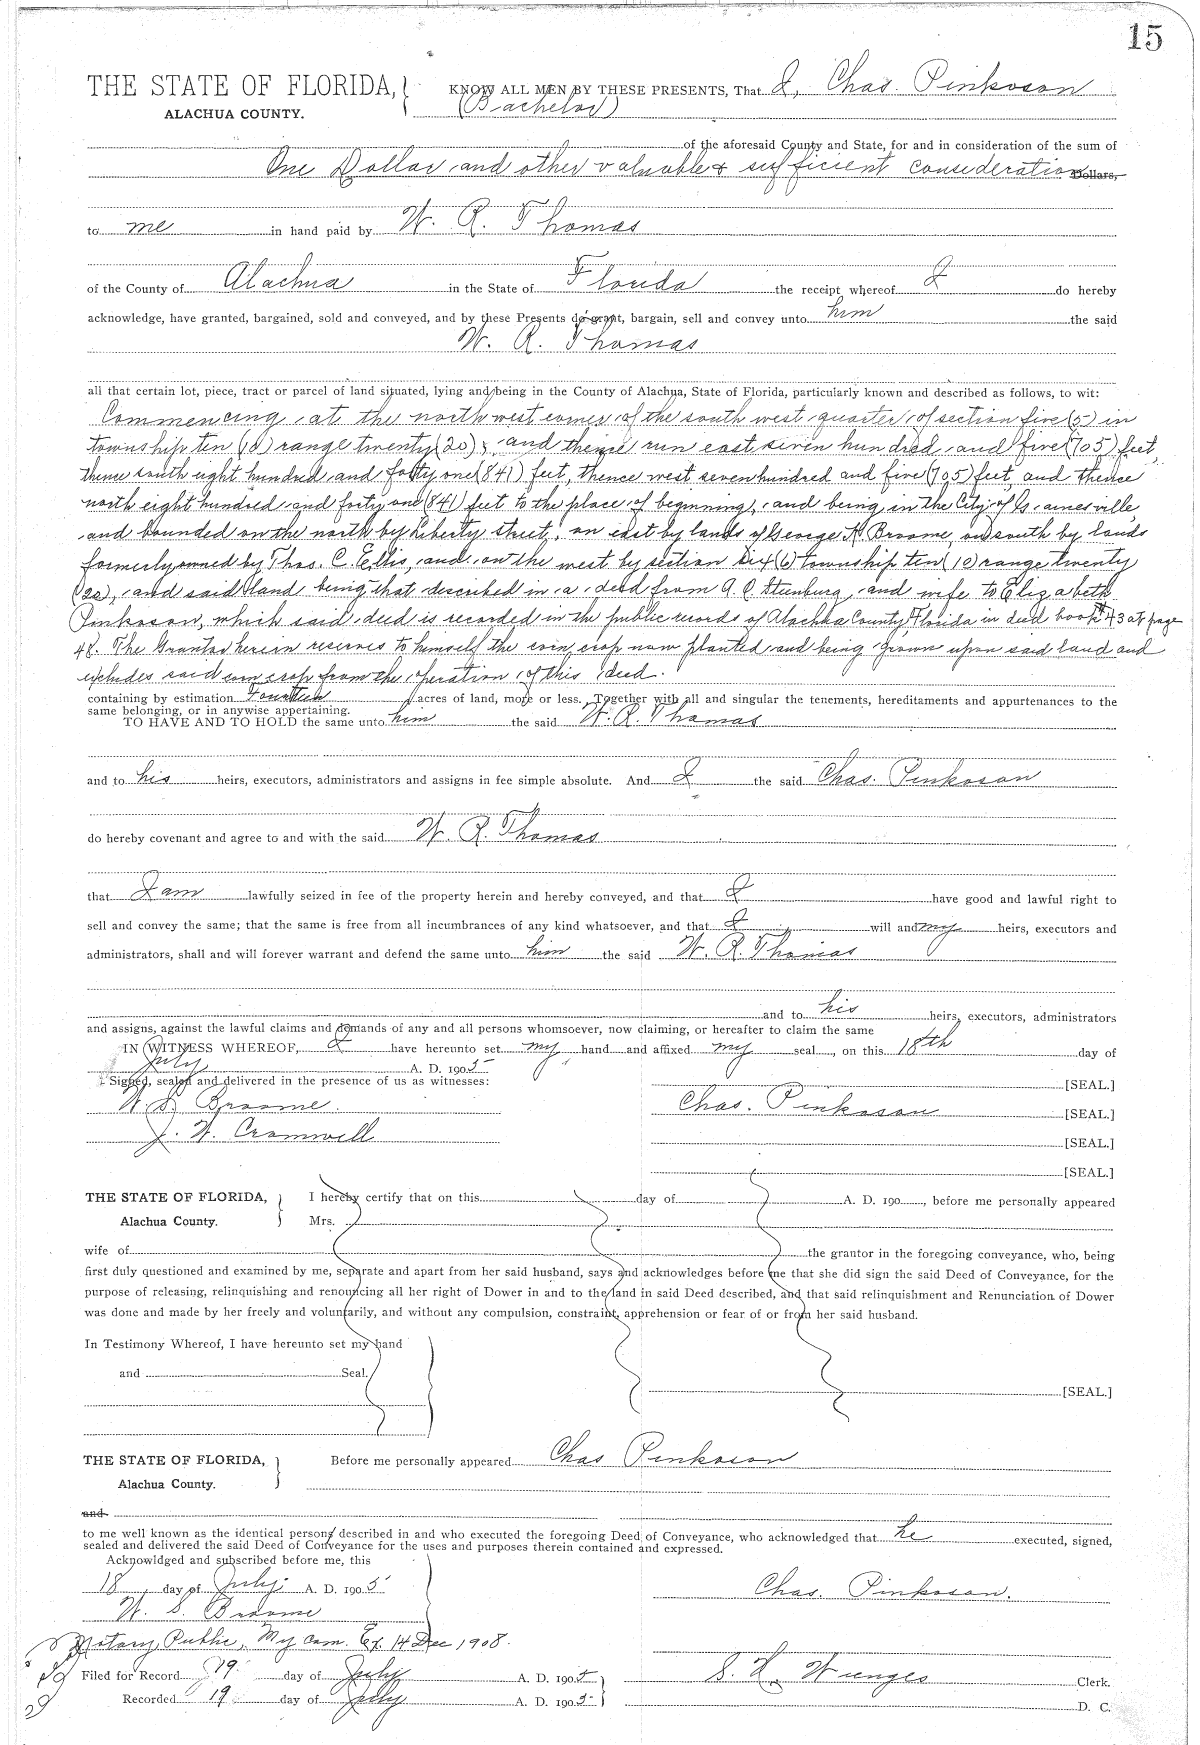 15
THE STATE OF FLORIDA, KNOW ALL MEN BY THESE PRESENTS, That I, Chas. Pinkoson
ALACHUA COUNTY. (Bachelor)
of the aforesaid County and State, for and in consideration of the sum of
One Dollar and other valuable & sufficient consideration Dollars,
to me in hand paid by W. R. Thomas
of the County of Alachua in the State of Florida the receipt whereof I do hereby
acknowledge, have granted, bargained, sold and conveyed, and by these Presents do grant, bargain, sell and convey unto him the said
W. R. Thomas
all that certain lot, piece, tract or parcel of land situated, lying and being in the County of Alachua, State of Florida, particularly known and described as follows, to wit:
Commencing at the north west corner of the south west quarter of section five (5) in
township ten (10) range twenty (20); and thence run east seven hundred and five (705) feet,
thence south eight hundred and forty one (841) feet, thence west seven hundred and five (705) feet and thence
north eight hundred and forty one (841) feet to the place of beginning, and being in the City of Gainesville,
and bounded on the north by Liberty street, on east by lands of George K. Broome on south by lands
formerly owned by Thos. C. Ellis, and on the west by section six (6) township ten (10) range twenty
(20), and said land being that described in a deed from A. C. Steenburg and wife to Elizabeth
Pinkoson, which said deed is recorded in the public records of Alachua County, Florida in deed book # 43 at page
48. The Grantor herein reserves to himself the corn crop now planted and being grown upon said land and
excludes said corn crop from the operation of this deed.
containing by estimation Fourteen acres of land, more or less. Together with all and singular the tenements, hereditaments and appurtenances to the
same belonging, or in anywise appertaining.
TO HAVE AND TO HOLD the same unto him the said W. R. Thomas
and to his heirs, executors, administrators and assigns in fee simple absolute. And I the said Chas. Pinkoson
do hereby covenant and agree to and with the said W. R. Thomas
that I am lawfully seized in fee of the property herein and hereby conveyed, and that I have good and lawful right to
sell and convey the same; that the same is free from all incumbrances of any kind whatsoever, and that I will and my heirs, executors and
administrators, shall and will forever warrant and defend the same unto him the said W. R. Thomas
and to his heirs, executors, administrators
and assigns, against the lawful claims and demands of any and all persons whomsoever, now claiming, or hereafter to claim the same
IN WITNESS WHEREOF, I have hereunto set my hand and affixed my seal, on this 18th day of
July A. D. 1905
Signed, sealed and delivered in the presence of us as witnesses: [SEAL.]
W. S. Broome. Chas. Pinkoson [SEAL.]
J. W. Cromwell [SEAL.]
[SEAL.]
THE STATE OF FLORIDA, I hereby certify that on this day of A. D. 190 , before me personally appeared
Alachua County. Mrs.
wife of the grantor in the foregoing conveyance, who, being
first duly questioned and examined by me, separate and apart from her said husband, says and acknowledges before me that she did sign the said Deed of Conveyance, for the
purpose of releasing, relinquishing and renouncing all her right of Dower in and to the land in said Deed described, and that said relinquishment and Renunciation of Dower
was done and made by her freely and voluntarily, and without any compulsion, constraint, apprehension or fear of or from her said husband.
In Testimony Whereof, I have hereunto set my hand
and Seal.
[SEAL.]
THE STATE OF FLORIDA, Before me personally appeared Chas Pinkoson
Alachua County.
and
to me well known as the identical person described in and who executed the foregoing Deed of Conveyance, who acknowledged that he executed, signed,
sealed and delivered the said Deed of Conveyance for the uses and purposes therein contained and expressed.
Acknowldged and subscribed before me, this
18 day of July. A. D. 1905 Chas. Pinkoson.
W. S. Broome
Notary Public, My com. Ex. 14 Dec 1908.
Filed for Record 19 day of July A. D. 1905 S. H. Wienges Clerk.
Recorded 19 day of July A. D. 1905 D. C.